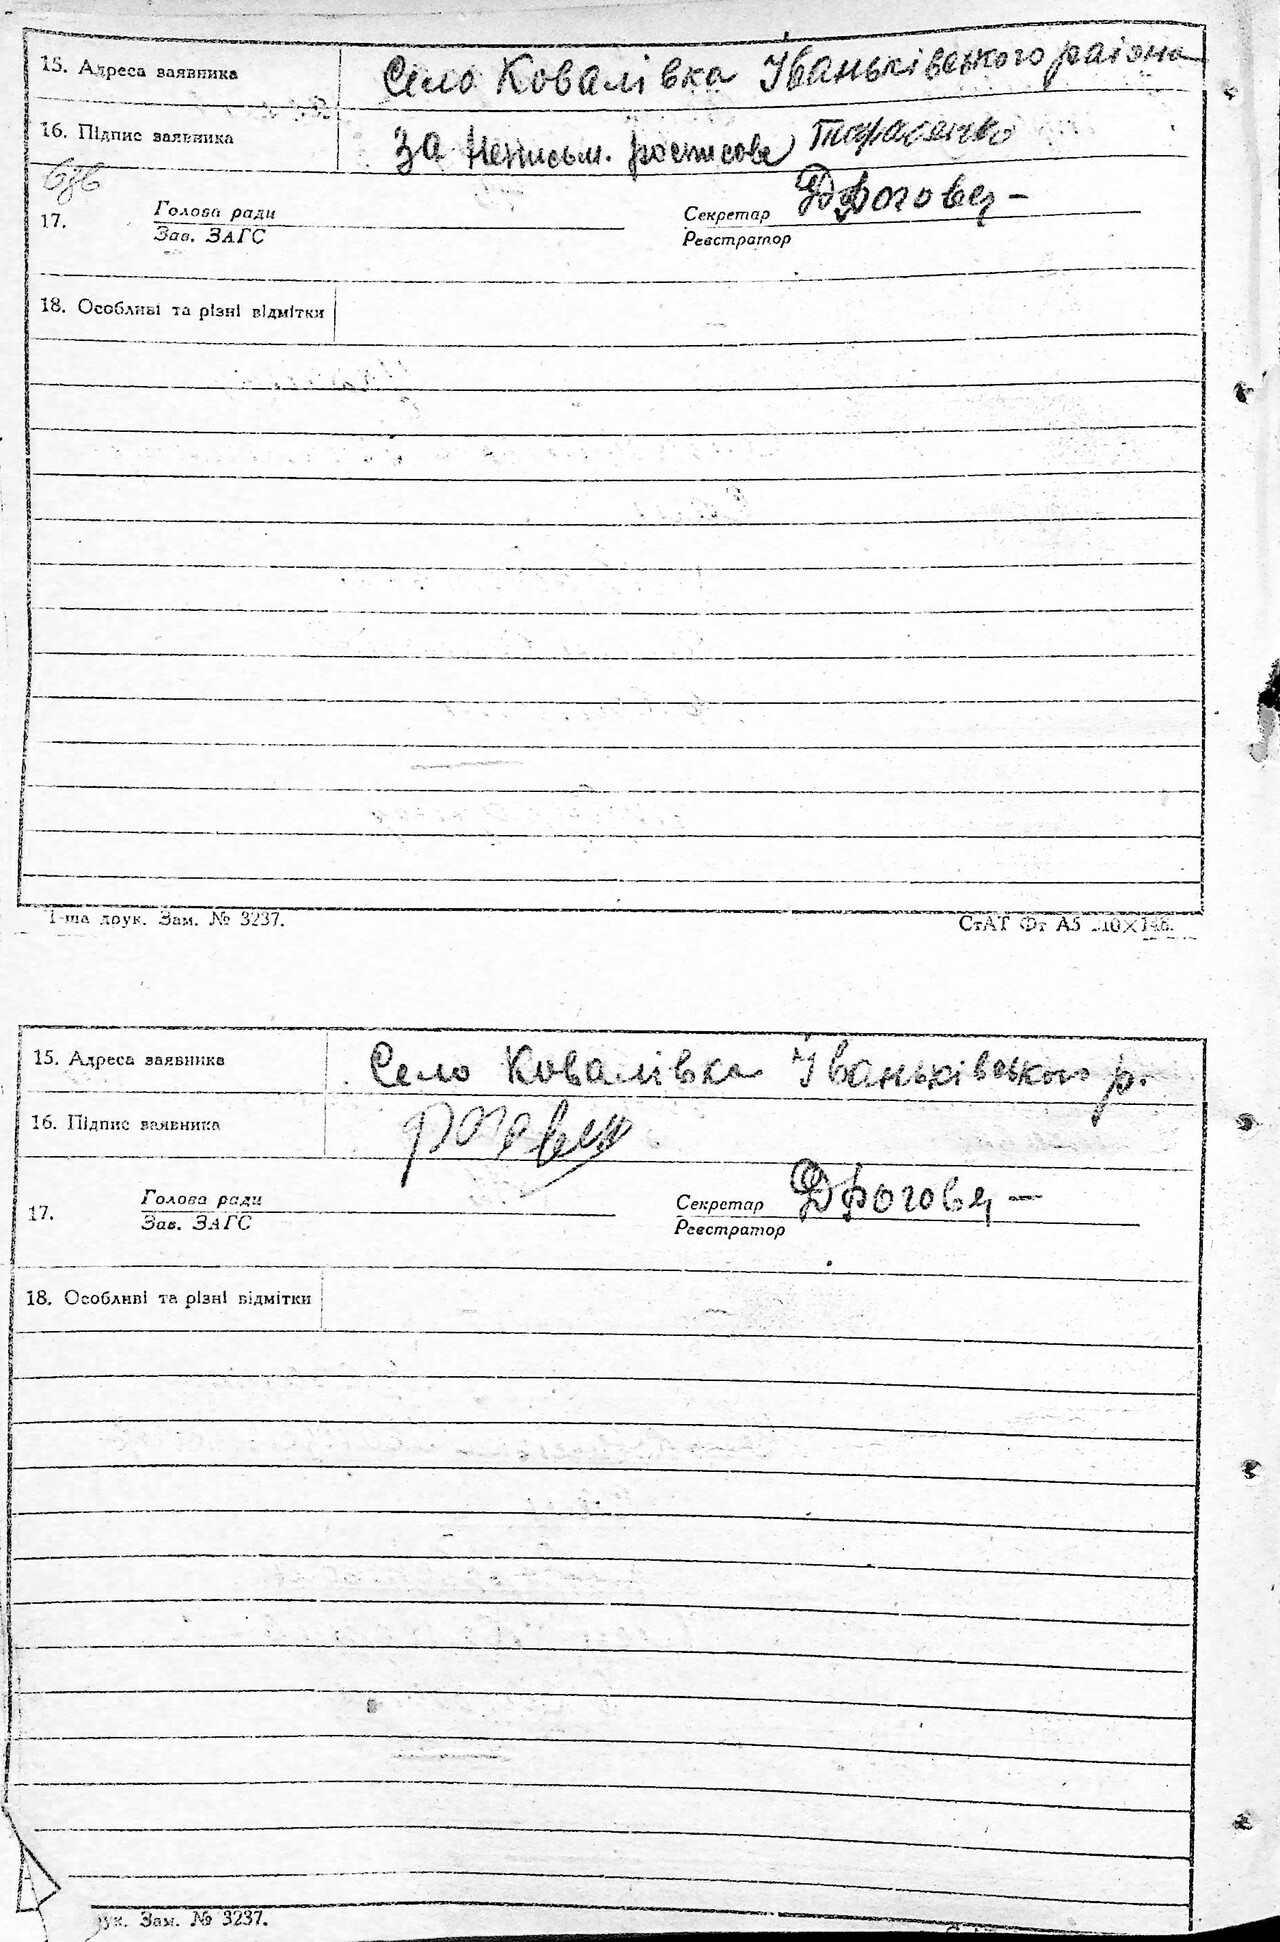 15. Адреса заявника Село Ковалівка Іваньківського раіона
16. Підпис заявника За неписьм. росписове Тарасенко
17. Голова ради Секретар ДРоговец -
Зав. ЗАГС Реєстратор
18. Особливі та різні відмітки
1-ша друк. Зам. № 3237. СтАТ Фт А5 210×148.
15. Адреса заявника Село Ковалівка Іваньківського р.
16. Підпис заявника Роговец
17. Голова ради Секретар ДРоговец -
Зав. ЗАГС Реєстратор
18. Особливі та різні відмітки
ук. Зам. № 3237.